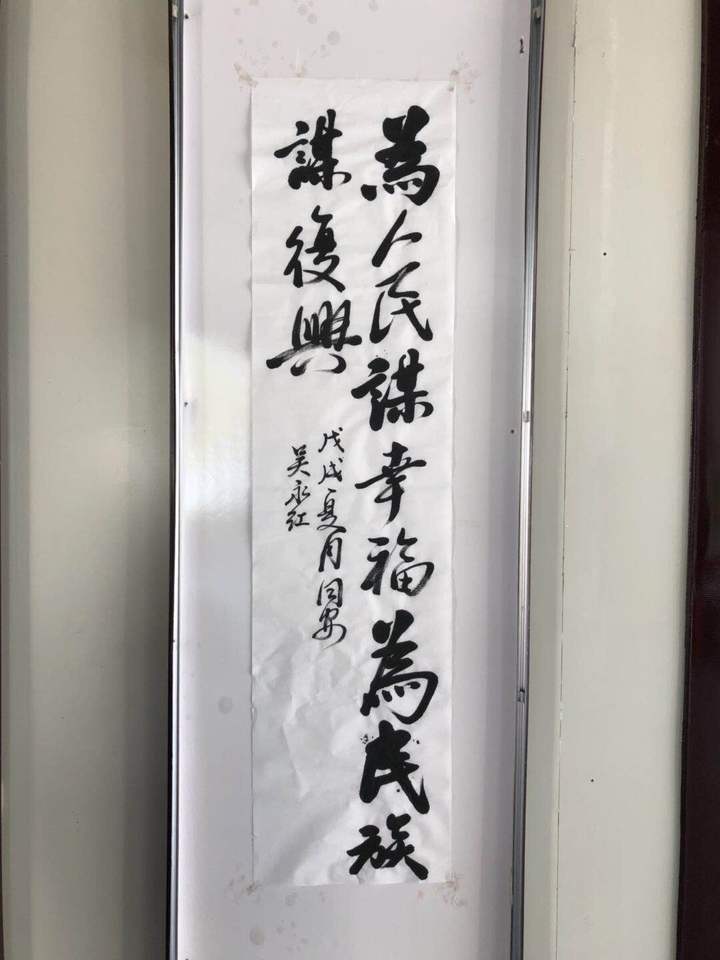 為人民謀幸福為民族
謀復興
戊戌夏月同安
吴永红